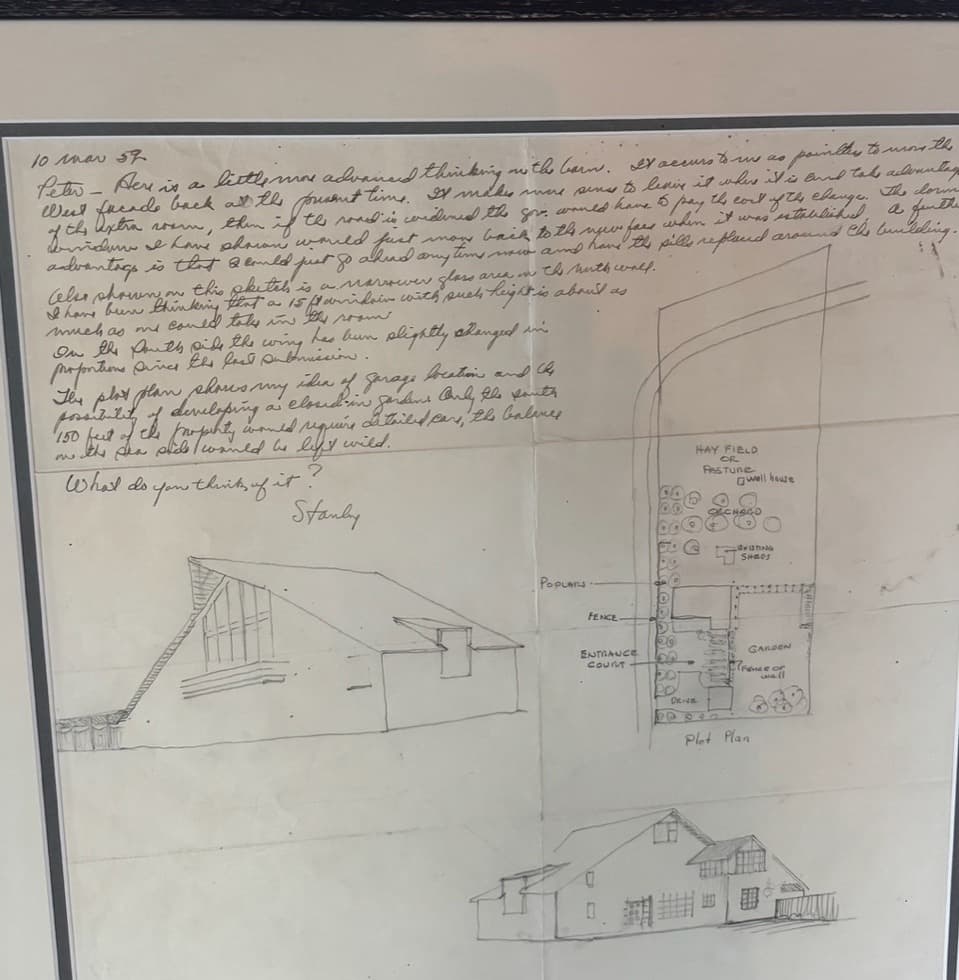 10 Mar 59
Peter – Here is a little more advanced thinking on the barn. It occurs to me as pointless to move the
West facade back at the present time. It makes more sense to leave it where it is and take advantage
of the extra room, then if the road is widened the gov. would have to pay the cost of the change. The dorm
windows I have shown would just move back to the new face when it was established. A further
advantage is that I could just go ahead any time now and have the sills replaced around the building.
Also shown on this sketch is a narrower glass area on the north wall.
I have been thinking that a 15 ft window with such height is about as
much as one could take in the room
On the South side the wing has been slightly changed in
proportions since the last submission.
The plot plan shows my idea of garage location and the
possibility of developing a closed-in garden. Only the south
150 feet of the property would require detailed care, the balance
on the sea side would be left wild.
What do you think of it?
Stanley
HAY FIELD
OR
PASTURE
Well house
ORCHARD
EXISTING
SHEDS
POPLARS
FENCE
ENTRANCE
COURT
GARDEN
FENCE OR
WALL
DRIVE
Plot Plan